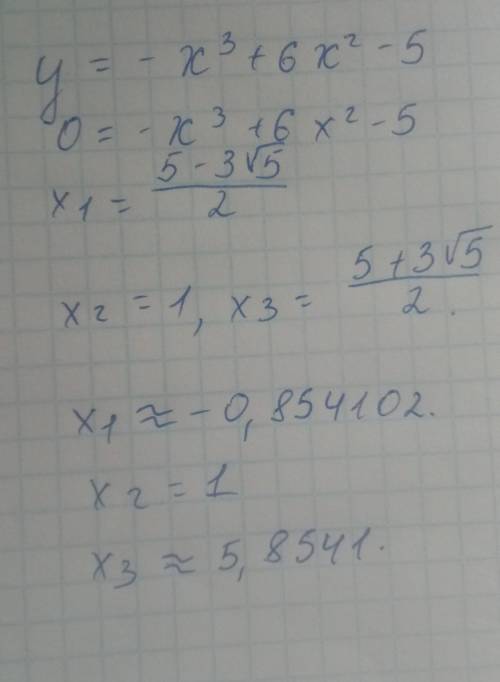 y = - x³ + 6x² - 5
0 = - x³ + 6x² - 5
x₁ = (5 - 3√5)/2
x₂ = 1, x₃ = (5 + 3√5)/2.
x₁ ≈ -0,854102.
x₂ = 1
x₃ ≈ 5,8541.